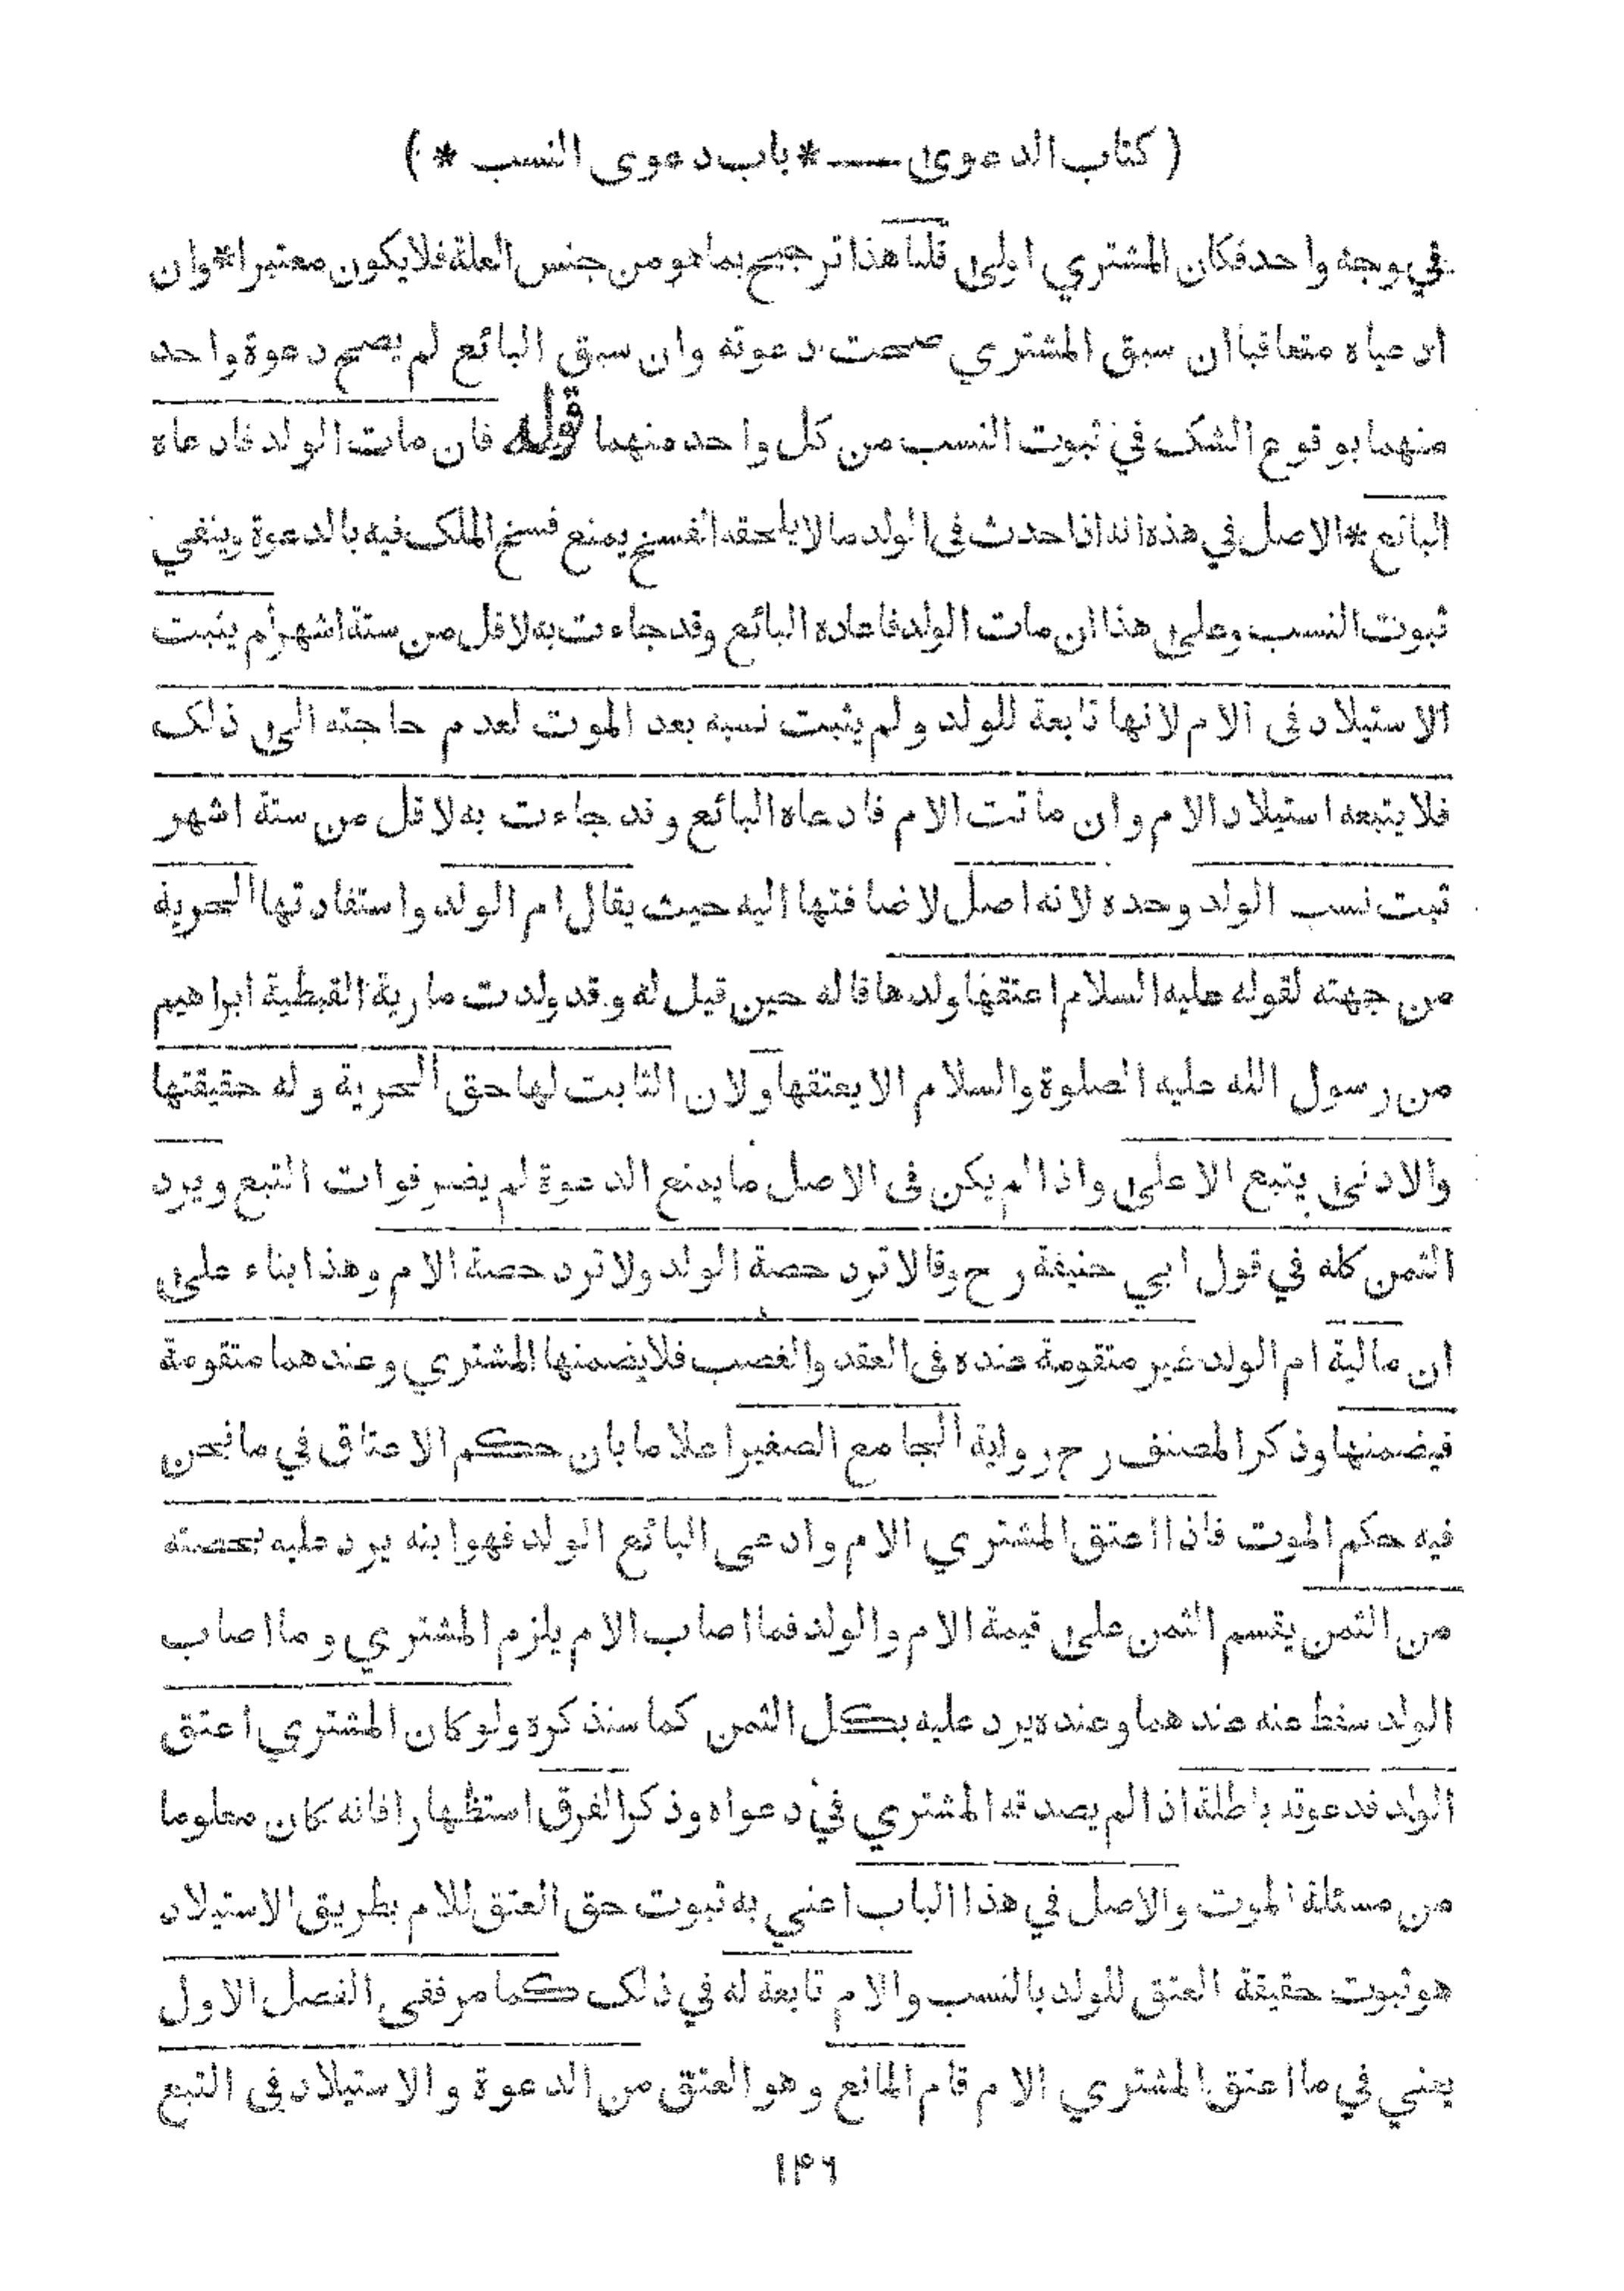 ( كتاب الدعوى — * باب دعوى النسب * )
في وجه واحد فكان المشتري اولى قلنا هذا ترجيح بما هو من جنس العلة فلا يكون معتبرا * وان
ادعياه متعاقبا ان سبق المشتري صحت دعوته وان سبق البائع لم يصح دعوة واحد
منهما بوقوع الشك في ثبوت النسب من كل واحد منهما قوله فان مات الولد فادعاه
البائع * الاصل في هذه انه اذا حدث في الولد ما لا يلحقه الفسخ يمنع فسخ الملك فيه بالدعوة وينفي
ثبوت النسب وعلى هذا ان مات الولد فادعاه البائع وقد جاءت به لاقل من ستة اشهر لم يثبت
الاستيلاد في الام لانها تابعة للولد ولم يثبت نسبه بعد الموت لعدم حاجته الى ذلك
فلا يتبعه استيلاد الام وان ماتت الام فادعاه البائع وقد جاءت به لاقل من ستة اشهر
ثبت نسب الولد وحده لانه اصل لاضافتها اليه حيث يقال ام الولد واستفادتها الحرية
من جهته لقوله عليه السلام اعتقها ولدها قاله حين قيل له وقد ولدت مارية القبطية ابراهيم
من رسول الله عليه الصلوة والسلام الا يعتقها ولان الثابت لها حق الحرية وله حقيقتها
والادنى يتبع الاعلى واذا لم يكن في الاصل ما يمنع الدعوة لم يضر فوات التبع ويرد
الثمن كله في قول ابي حنيفة رح وقالا ترد حصة الولد ولا ترد حصة الام وهذا بناء على
ان مالية ام الولد غير متقومة عنده في العقد والغصب فلا يضمنها المشتري وعندهما متقومة
فيضمنها وذكر المصنف رح رواية الجامع الصغير اعلاما بان حكم الاعتاق في ما نحن
فيه حكم الموت فاذا اعتق المشتري الام وادعى البائع الولد فهو ابنه يرد عليه بحصته
من الثمن يقسم الثمن على قيمة الام والولد فما اصاب الام يلزم المشتري وما اصاب
الولد سقط عنه عندهما وعنده يرد عليه بكل الثمن كما سنذكره ولو كان المشتري اعتق
الولد فدعوته باطلة اذا لم يصدقه المشتري في دعواه وذكر الفرق استظهارا فانه كان معلوما
من مسئلة الموت والاصل في هذا الباب اعني به ثبوت حق العتق للام بطريق الاستيلاد
هو ثبوت حقيقة العتق للولد بالنسب والام تابعة له في ذلك كما مر ففي الفصل الاول
يعني في ما اعتق المشتري الام قام المانع وهو العتق من الدعوة والاستيلاد في التبع
۱۴۶